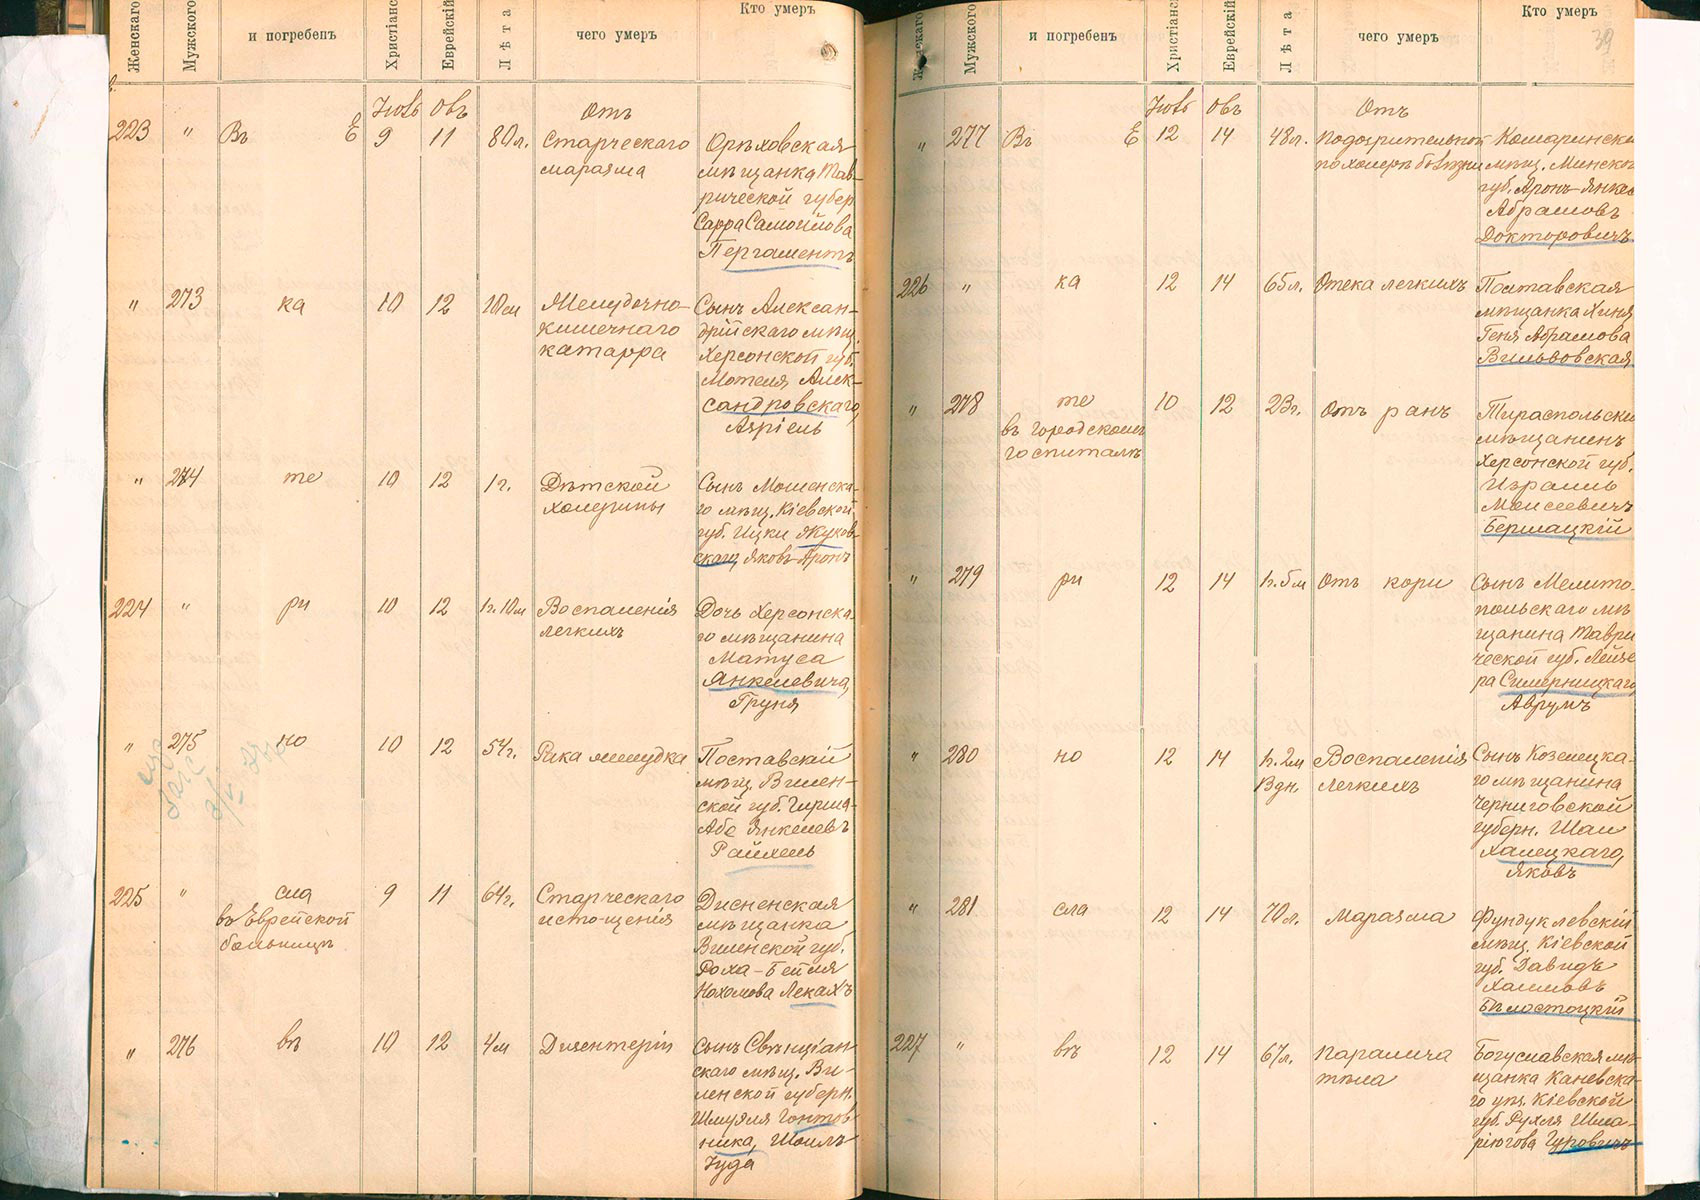 Женскаго
Мужскаго
и погребенъ
Христіанс
Еврейскій
Лѣта
чего умеръ
Кто умеръ
223 " Въ Е 9 11 80л.
Отъ
Старческаго
маразма
Орѣховская
мѣщанка Тав-
рической губер
Сарра Самойлова
Пергаментъ
" 273 ка 10 12 10м
Желудочно-
кишечнаго
катарра
Сынъ Алексан-
дрійскаго мѣщ.
Херсонской губ.
Мотеля Алек-
сандровскаго,
Азріель
" 274 те 10 12 1г.
Дѣтской
холерины
Сынъ Мошенска-
го мѣщ. Кіевской
губ. Ицки Жуков-
скаго, Яковъ-Аронъ
224 " ри 10 12 1г.10м
Воспаленія
легкихъ
Дочь Херсонска-
го мѣщанина
Матуса
Янкелевича,
Груня
" 275 но 10 12 54г.
Рака желудка
Поставскій
мѣщ. Вилен-
ской губ. Гирша-
Абе Янкелевъ
Райхель
225 " сла 9 11 64г.
въ Еврейской
больницѣ
Старческаго
истощенія
Дисненская
мѣщанка
Виленской губ.
Роха-Бейля
Нохомова Лекахъ
" 276 вѣ 10 12 4м
Дизентеріи
Сынъ Свѣнціан
скаго мѣщ. Ви-
ленской губерн.
Шмуэля Гонтов-
ника, Шоилъ
Іуда
Женскаго
Мужского
и погребенъ
Христіанс
Еврейскій
Лѣта
чего умеръ
Кто умеръ
39
" 277 Въ Е 12 14 48л.
Отъ
Подозрительной
по холерѣ болѣзни
Комаринскі
мѣщ. Минской
губ. Аронъ-Янкел
Абрамовъ
Докторовичъ
226 " ка 12 14 65л.
Отека легкихъ
Поставская
мѣщанка Хиня
Геня Абрамова
Вильвовская
" 278 те 10 12 23г.
въ городскомъ
госпиталѣ
Отъ ранъ
Тираспольскі
мѣщанинъ
Херсонской губ.
Израиль
Моисеевичъ
Бершацкій
" 279 ри 12 14 1г.5м
Отъ кори
Сынъ Мелито-
польскаго мѣ
щанина Таври
ческой губ. Лейзе
ра Смерницкаго,
Аврумъ
" 280 но 12 14 1г.2м
3дн.
Воспаленія
легкихъ
Сынъ Козелецка-
го мѣщанина
Черниговской
губерн. Шаи
Халецкаго,
Яковъ
" 281 сла 12 14 70л.
Маразма
Фундуклевскій
мѣщ. Кіевской
губ. Давидъ
Хаимовъ
Бѣлостоцкій
227 " вѣ 12 14 67л.
Паралича
тѣла
Богуславская мѣ-
щанка Каневска-
го уѣз. Кіевской
губ. Рухля Шма-
ріюгова Гуровичъ